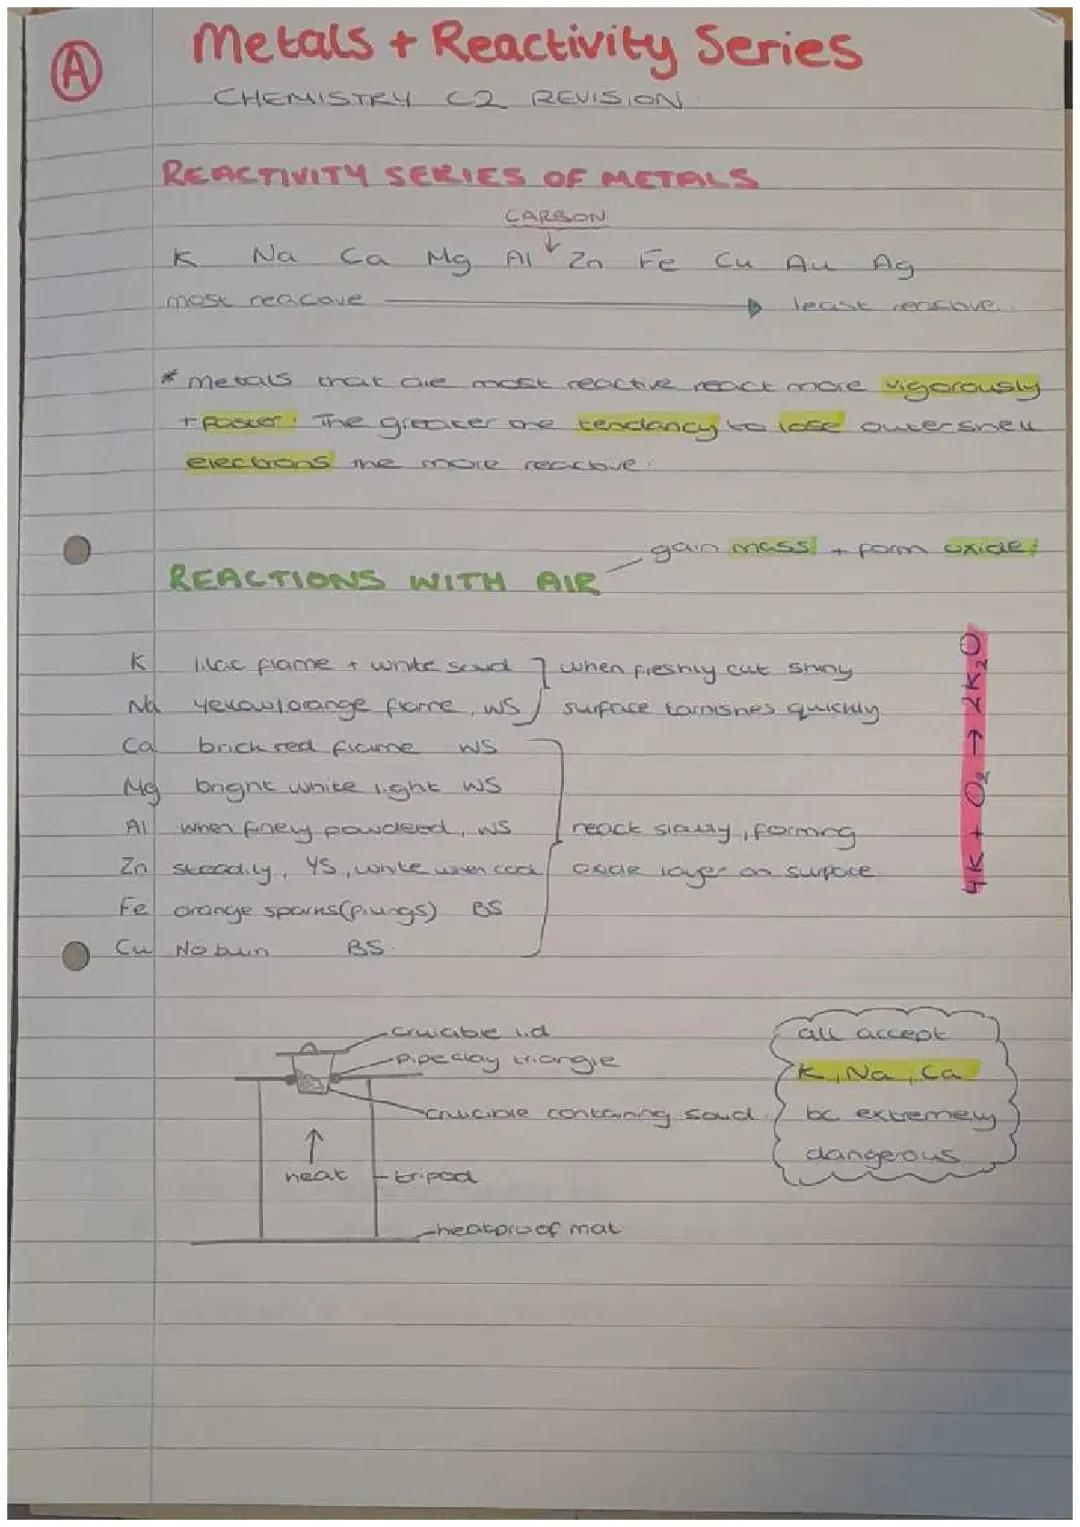 A
Metals + Reactivity Series
CHEMISTRY C2 REVISION
REACTIVITY SERIES OF METALS
CARBON
K Na Ca Mg Al Zn Fe Cu Au Ag
most reactive → least reactive.
* metals that are most reactive react more vigorously
+ faster. The greater the tendancy to lose outershell
electrons the more reactive.
gain mass + form oxide.
REACTIONS WITH AIR
K lilac flame + white solid
Na yellow/orange flame, WS
when freshly cut shiny
surface tarnishes quickly
Ca brick red flame WS
Mg bright white light WS
Al when finely powdered, WS
Zn steadily, YS, white when cool
Fe orange sparks (filings) BS
Cu No burn BS.
react slowly, forming
oxide layer on surface
4K + O₂ → 2K₂O
crucible lid
pipeclay triangle
crucible containing solid
↑
heat
tripod
heatproof mat
all accept
K, Na, Ca
bc extremely
dangerous